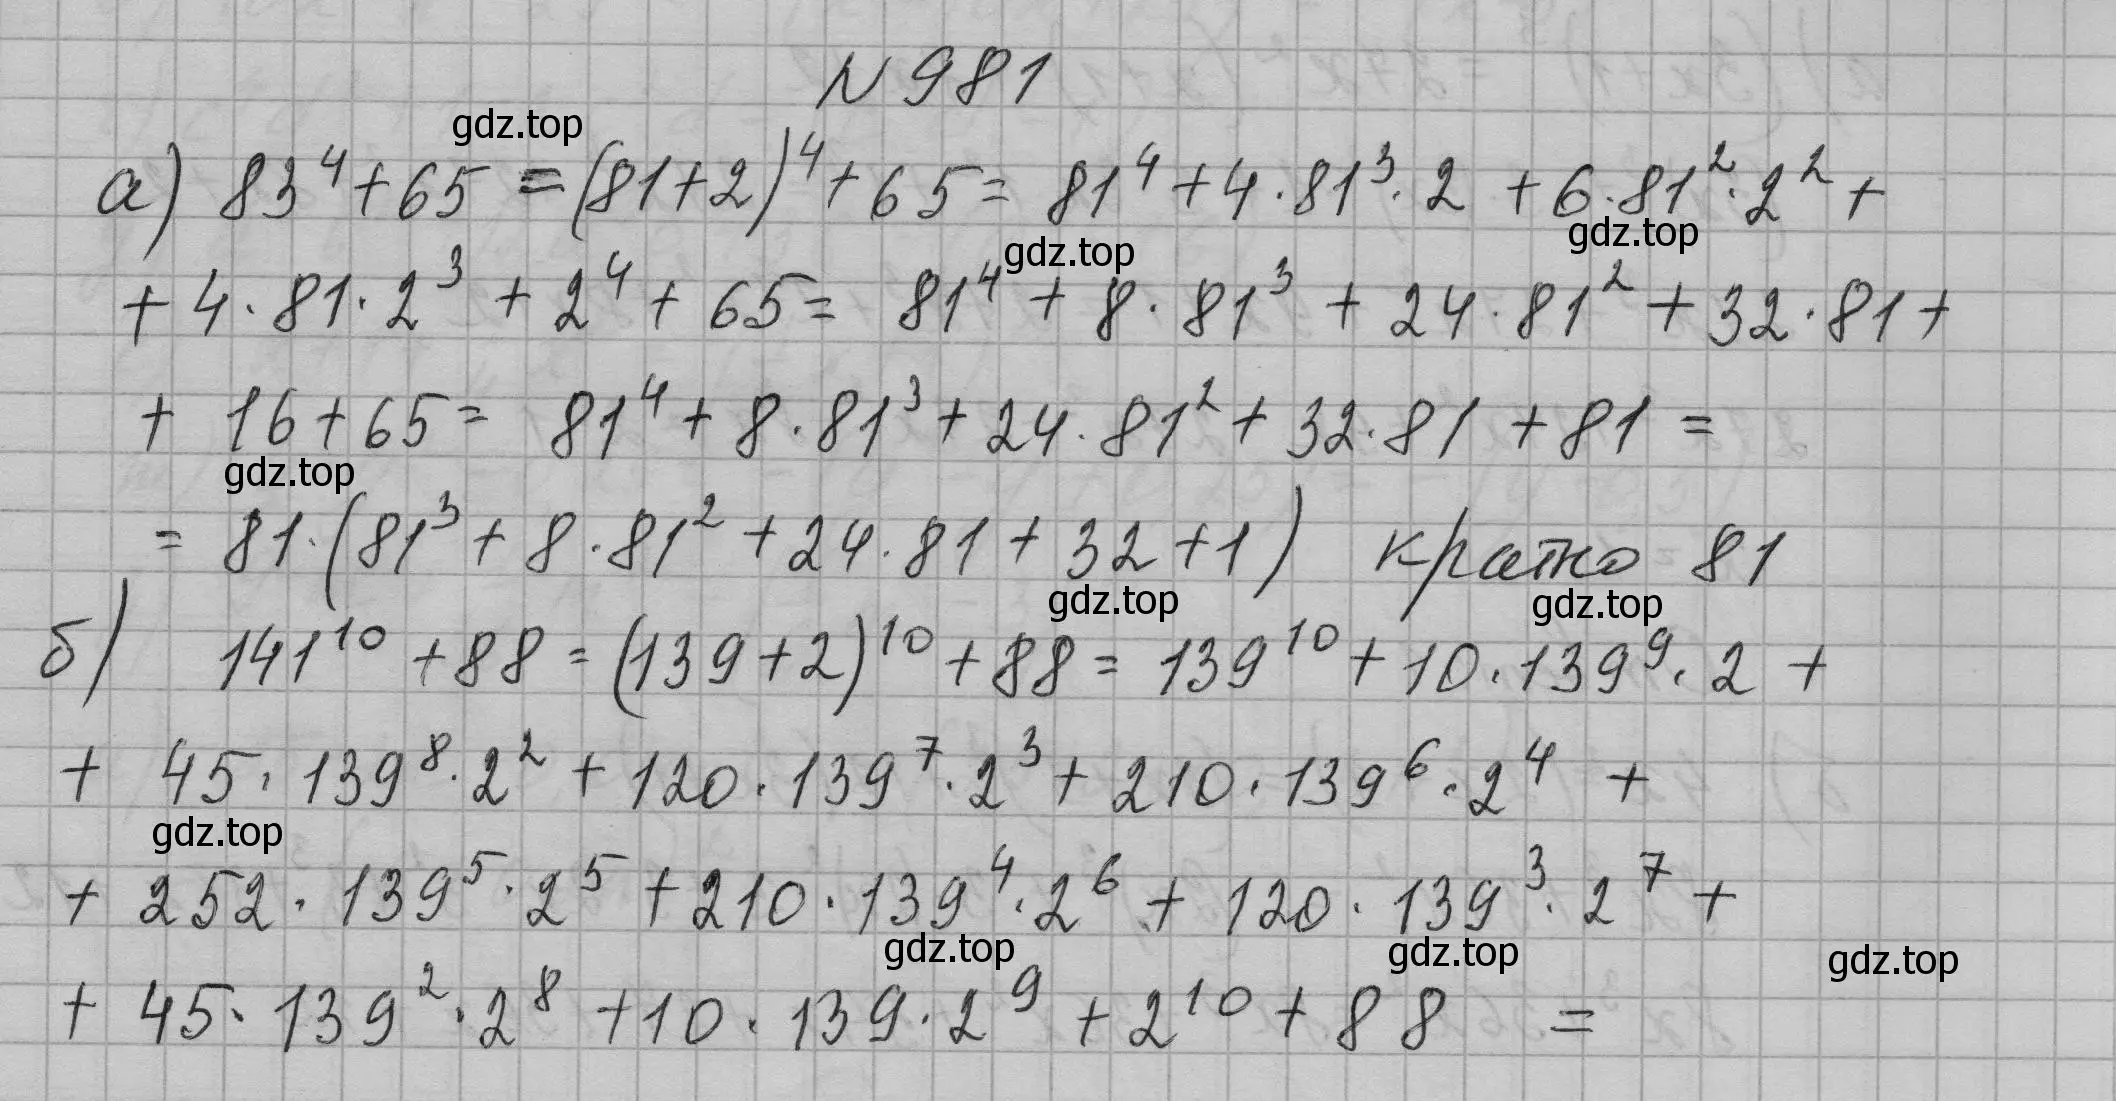 N 981
gdz.top
а) 83⁴ + 65 = (81+2)⁴ + 65 = 81⁴ + 4·81³·2 + 6·81²·2² +
gdz.top gdz.top
+ 4·81·2³ + 2⁴ + 65 = 81⁴ + 8·81³ + 24·81² + 32·81 +
+ 16 + 65 = 81⁴ + 8·81³ + 24·81² + 32·81 + 81 =
gdz.top
= 81·(81³ + 8·81² + 24·81 + 32 + 1) кратно 81
gdz.top gdz.top
б) 141¹⁰ + 88 = (139+2)¹⁰ + 88 = 139¹⁰ + 10·139⁹·2 +
+ 45·139⁸·2² + 120·139⁷·2³ + 210·139⁶·2⁴ +
gdz.top
+ 252·139⁵·2⁵ + 210·139⁴·2⁶ + 120·139³·2⁷ +
gdz.top gdz.top gdz.top
+ 45·139²·2⁸ + 10·139·2⁹ + 2¹⁰ + 88 =